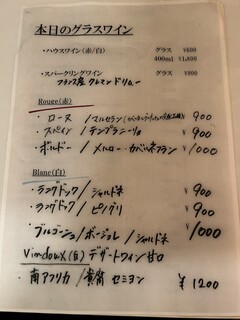 本日のグラスワイン
・ハウスワイン(赤/白) グラス ¥600
400ml ¥1,800
・スパークリングワイン グラス ¥800
フランス産 クレマン ドリムー
Rouge(赤)
・ローヌ/マルセラン ¥900
・スペイン/テンプラニーリョ ¥900
・ボルドー/メルロー・カベルネフラン ¥1000
Blanc(白)
・ラングドック/シャルドネ ¥900
・ラングドック/ピノグリ ¥900
・ブルゴーニュ/ボージョレ/シャルドネ ¥1000
デザートワイン 甘口
・南アフリカ/貴腐 セミヨン ¥1200